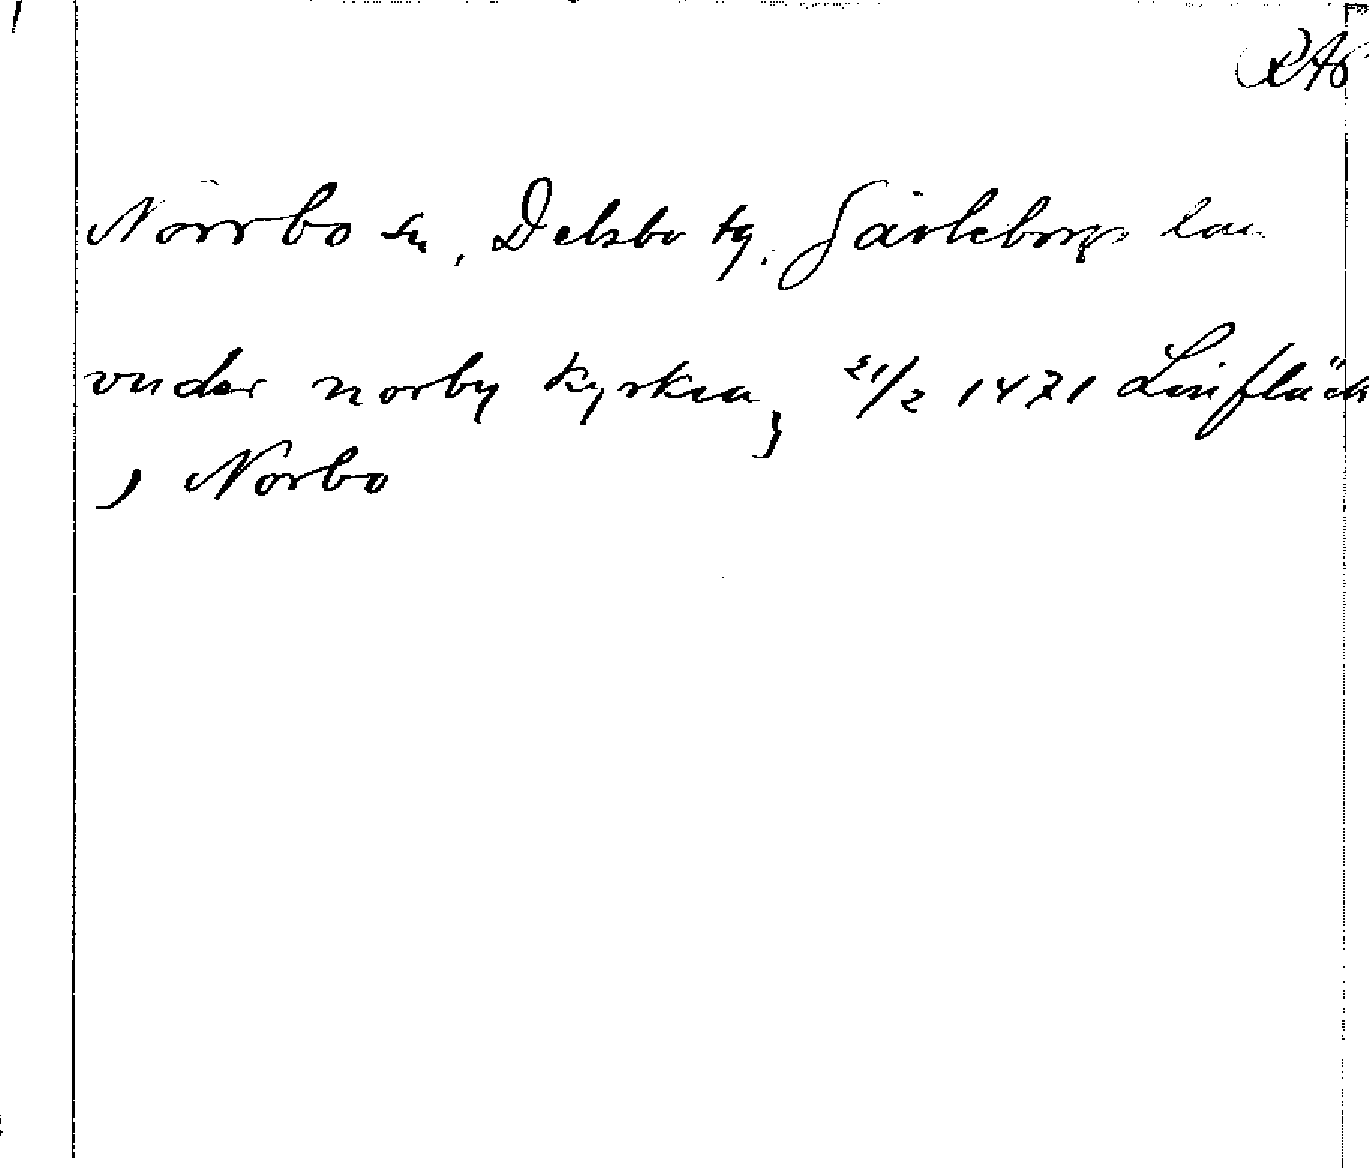 RAp
Norrbo sn, Delsbo tg. Gävleborgs län
vnder norby kyrkea, 21/2 1471
, Norbo